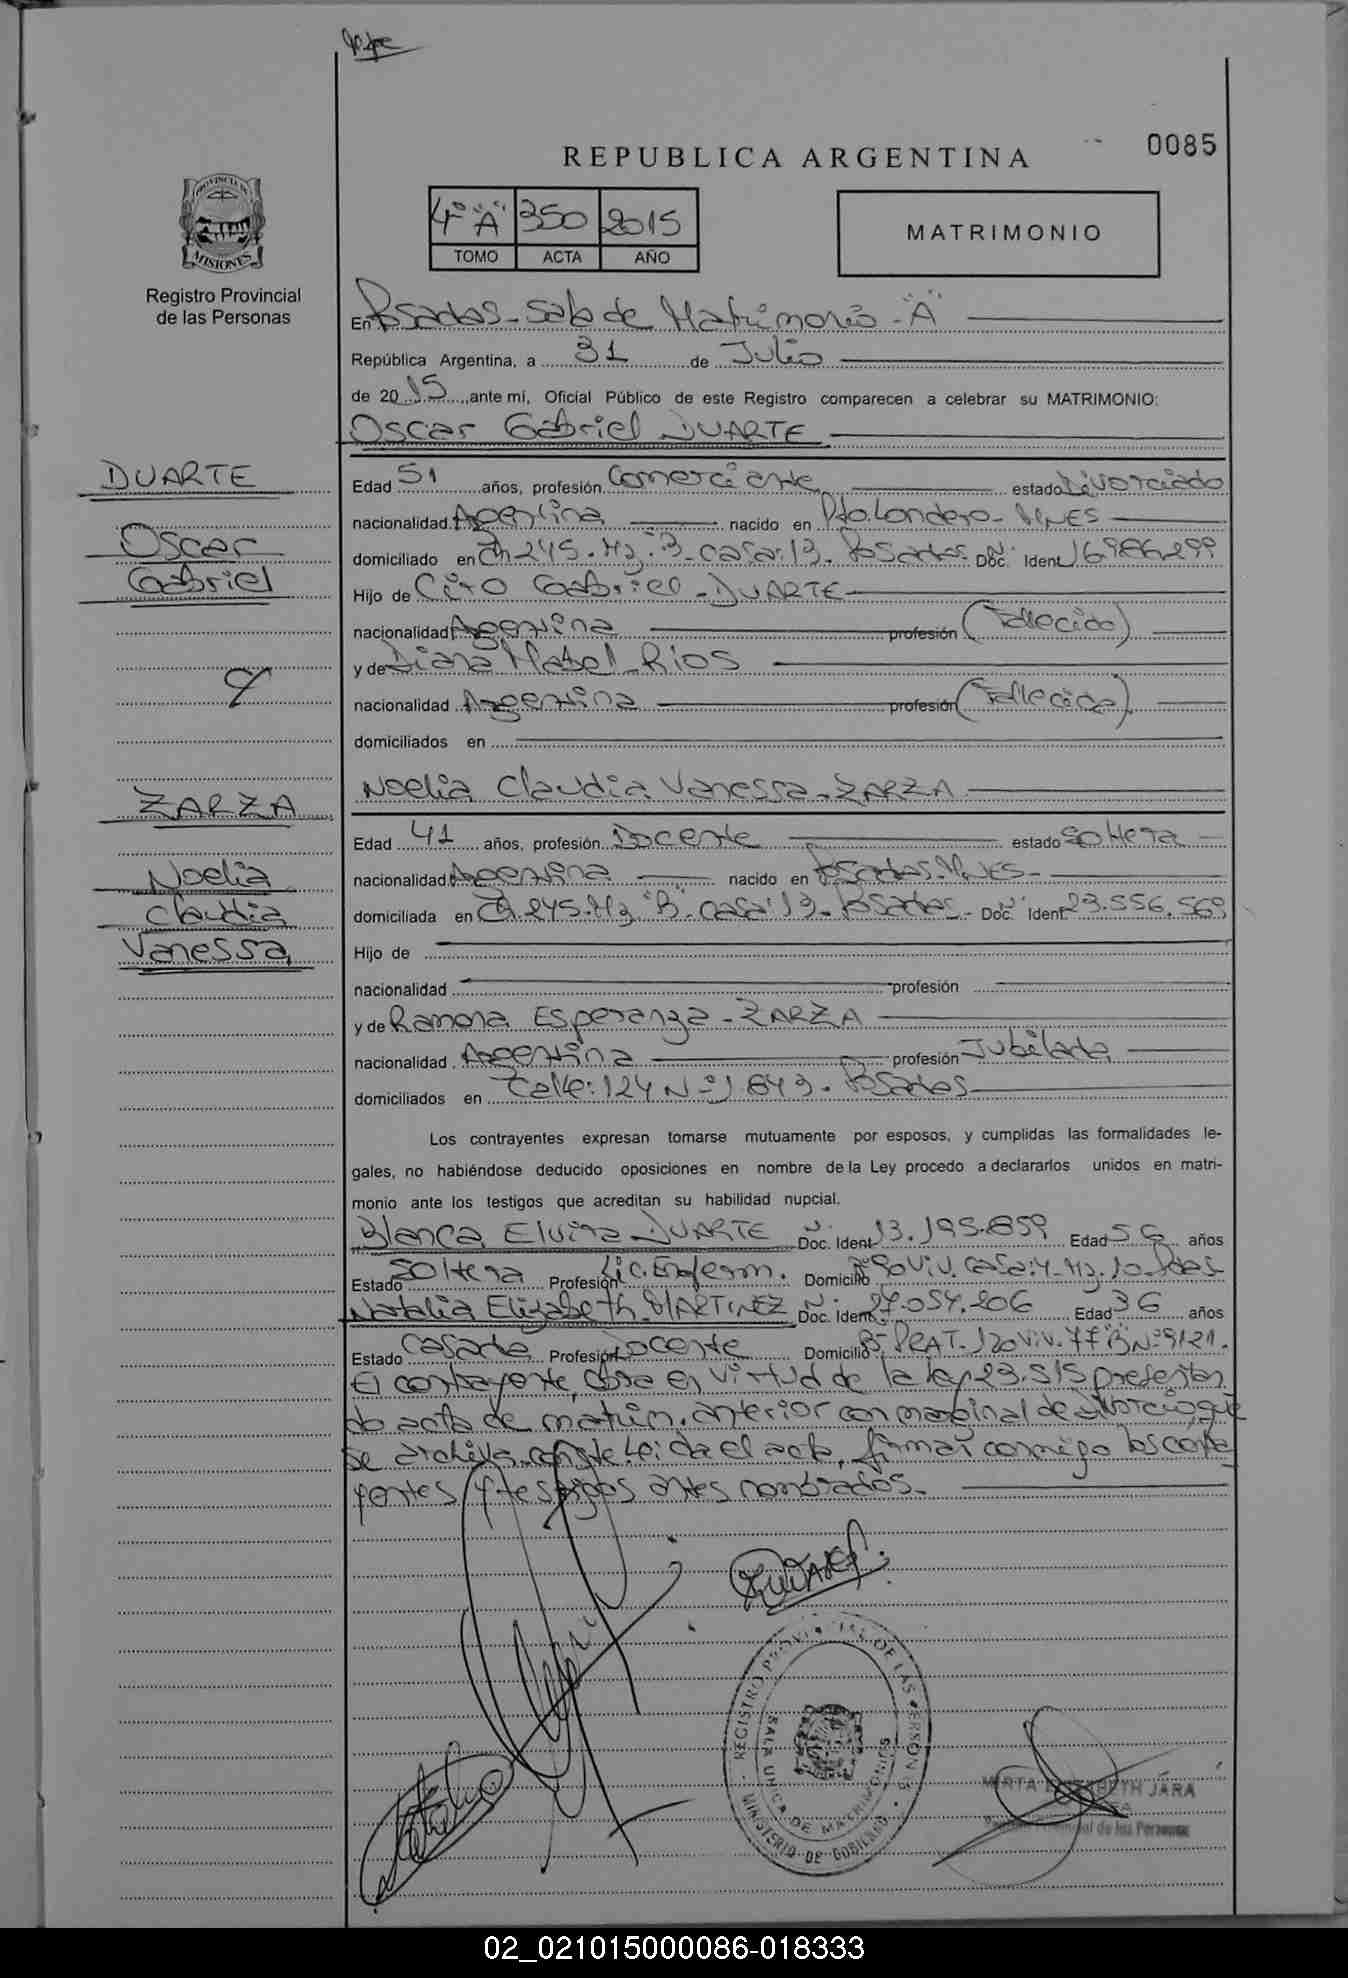 0085
REPUBLICA ARGENTINA
PROVINCIA DE
MISIONES
Registro Provincial
de las Personas
4º "A" 350 2015
TOMO ACTA AÑO
MATRIMONIO
En Posadas - Sala de Matrimonio - "A"
República Argentina, a 31 de Julio
de 2015, ante mí, Oficial Público de este Registro comparecen a celebrar su MATRIMONIO:
Oscar Gabriel DUARTE
DUARTE
Oscar
Gabriel
Edad 51 años, profesión Comerciante estado Divorciado
nacionalidad Argentina nacido en Pto. Londero - MNES
domiciliado en Ch. 245. Mz. "B" - casa: 13. Posadas - Doc. Nº Ident 16986299
Hijo de Ciro Gabriel - DUARTE
nacionalidad Argentina profesión (Fallecido)
y de Diana Mabel - Rios
nacionalidad Argentina profesión (Fallecida)
domiciliados en
y
ZARZA
Noelia
Claudia
Vanessa
Noelia Claudia Vanessa - ZARZA
Edad 41 años, profesión Docente estado Soltera
nacionalidad Argentina nacido en Posadas. MNES -
domiciliada en Ch. 245. Mz "B" - casa: 13 - Posadas - Doc. Nº Ident 23.556.569
Hijo de
nacionalidad profesión
y de Ramona Esperanza - ZARZA
nacionalidad Argentina profesión Jubilada
domiciliados en Calle: 124 Nº 1843 - Posadas
Los contrayentes expresan tomarse mutuamente por esposos, y cumplidas las formalidades le-
gales, no habiéndose deducido oposiciones en nombre de la Ley procedo a declararlos unidos en matri-
monio ante los testigos que acreditan su habilidad nupcial.
Blanca Elvira DUARTE Nº Doc. Ident 13.195.859 Edad 56 años
Estado Soltera Profesión Lic. Enferm. Domicilio 90 Viv. casa: 4 - Mz. 10 - Pdas
Natalia Elizabeth MARTINEZ Nº Doc. Ident 27.054.206 Edad 36 años
Estado Casada Profesión Docente Domicilio Bº PRAT. 120 Viv. Nº 9121.
El contrayente, obra en virtud de la ley 23.515 presentan
do acta de matrim. anterior con marginal de divorcio, que
se archiva. conste. Leida el acta, firman conmigo los contra
yentes y testigos antes nombrados.
REGISTRO PROVINCIAL DE LAS PERSONAS
SALA UNICA DE MATRIMONIOS
MINISTERIO DE GOBIERNO
MIRTA ELIZABETH JARA
Provincial de las Personas
02_021015000086-018333